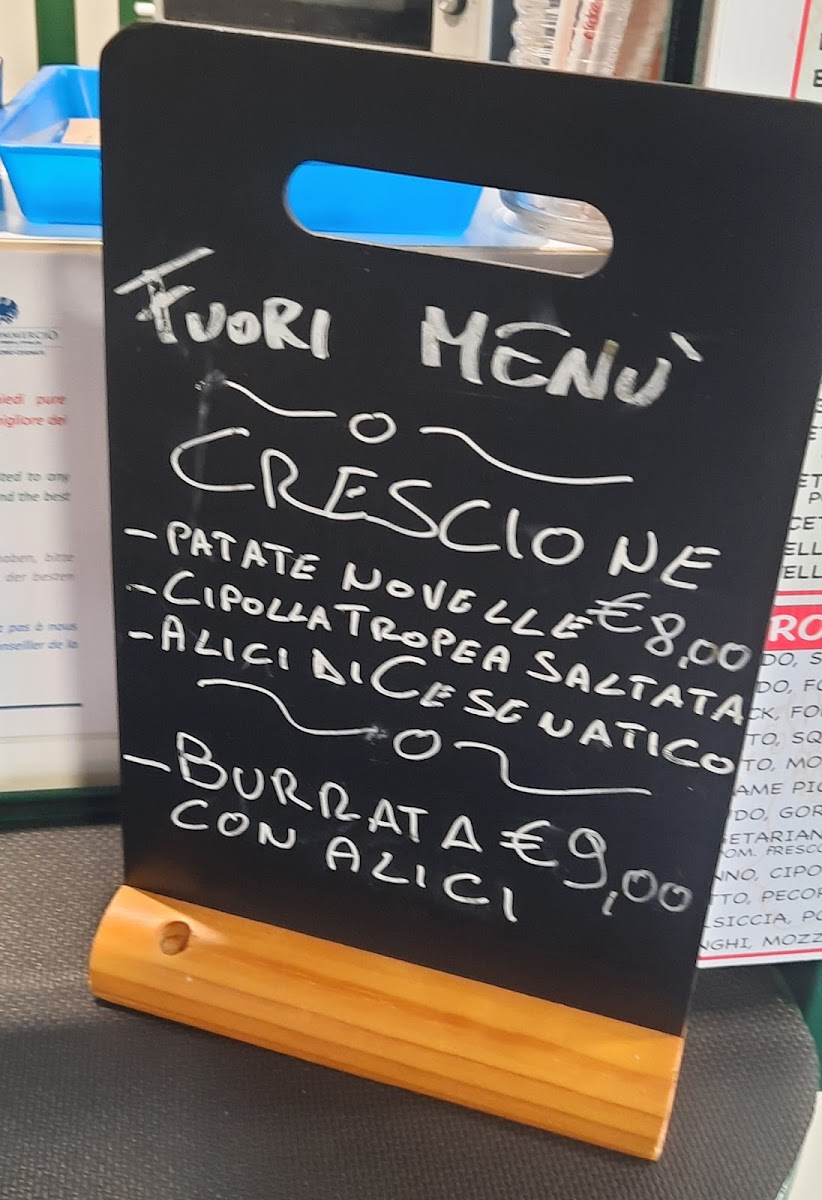 FUORI MENÙ
CRESCIONE
- PATATE NOVELLE €8,00
- CIPOLLA TROPEA SALTATA
- ALICI DI CESENATICO
- BURRATA €9,00
CON ALICI
iedi pure
migliore dei
ted to any
nd the best
haben, bitte
der besten
pas à nous
nseiller de la
RO
DO, S
DO, FO
CK, FO
TO, SQ
TO, MO
AME PIC
DO, GOR
GETARIAN
OM. FRESCO
NNO, CIPO
TTO, PECOR
LSICCIA, PO
NGHI, MOZZ